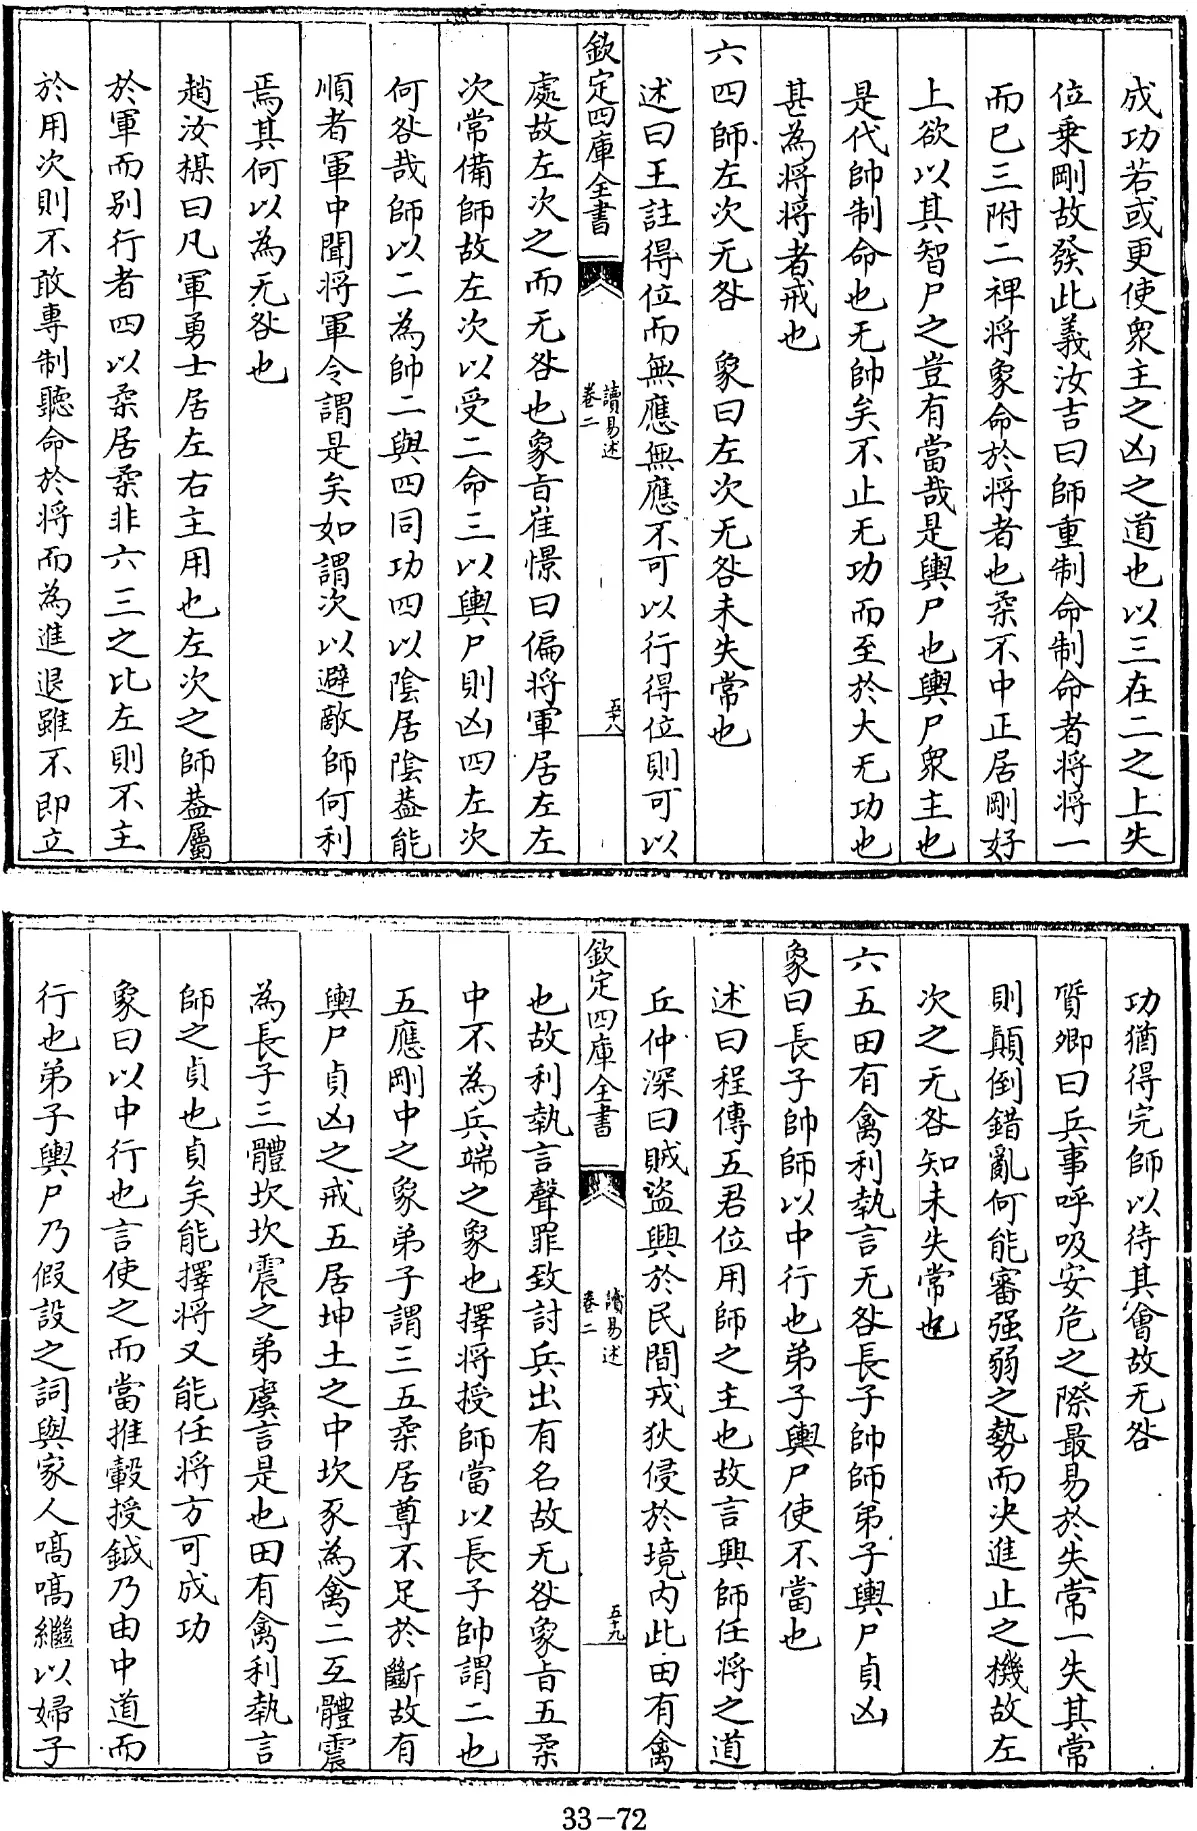 成功若或更使衆主之凶之道也以三在二之上失
位乗剛故發此義汝吉曰師重制命制命者將將一
而已三附二裨將象命於將者也柔不中正居剛好
上欲以其智尸之豈有當哉是輿尸也輿尸衆主也
是代帥制命也无帥矣不止无功而至於大无功也
甚為將將者戒也
六四師左次无咎　象曰左次无咎未失常也
述曰王註得位而無應無應不可以行得位則可以
欽定四庫全書
讀易述
卷二
五十八
處故左次之而无咎也象旨崔憬曰偏將軍居左左
次常備師故左次以受二命三以輿尸則凶四左次
何咎哉師以二為帥二與四同功四以陰居陰葢能
順者軍中聞將軍令謂是矣如謂次以避敵師何利
焉其何以為无咎也
趙汝楳曰凡軍勇士居左右主用也左次之師葢屬
於軍而别行者四以柔居柔非六三之比左則不主
於用次則不敢專制聽命於將而為進退雖不即立
功猶得完師以待其㑹故无咎
質卿曰兵事呼吸安危之際最易於失常一失其常
則顛倒錯亂何能審强弱之勢而决進止之機故左
次之无咎知未失常也
六五田有禽利執言无咎長子帥師弟子輿尸貞凶
象曰長子帥師以中行也弟子輿尸使不當也
述曰程傳五君位用師之主也故言興師任將之道
丘仲深曰賊盗興於民間戎狄侵於境内此田有禽
欽定四庫全書
讀易述
卷二
五十九
也故利執言聲罪致討兵出有名故无咎象旨五柔
中不為兵端之象也擇將授師當以長子帥謂二也
五應剛中之象弟子謂三五柔居尊不足於斷故有
輿尸貞凶之戒五居坤土之中坎豕為禽二互體震
為長子三體坎坎震之弟虞言是也田有禽利執言
師之貞也貞矣能擇將又能任將方可成功
象曰以中行也言使之而當推轂授鉞乃由中道而
行也弟子輿尸乃假設之詞與家人嗃嗃繼以婦子
33-72